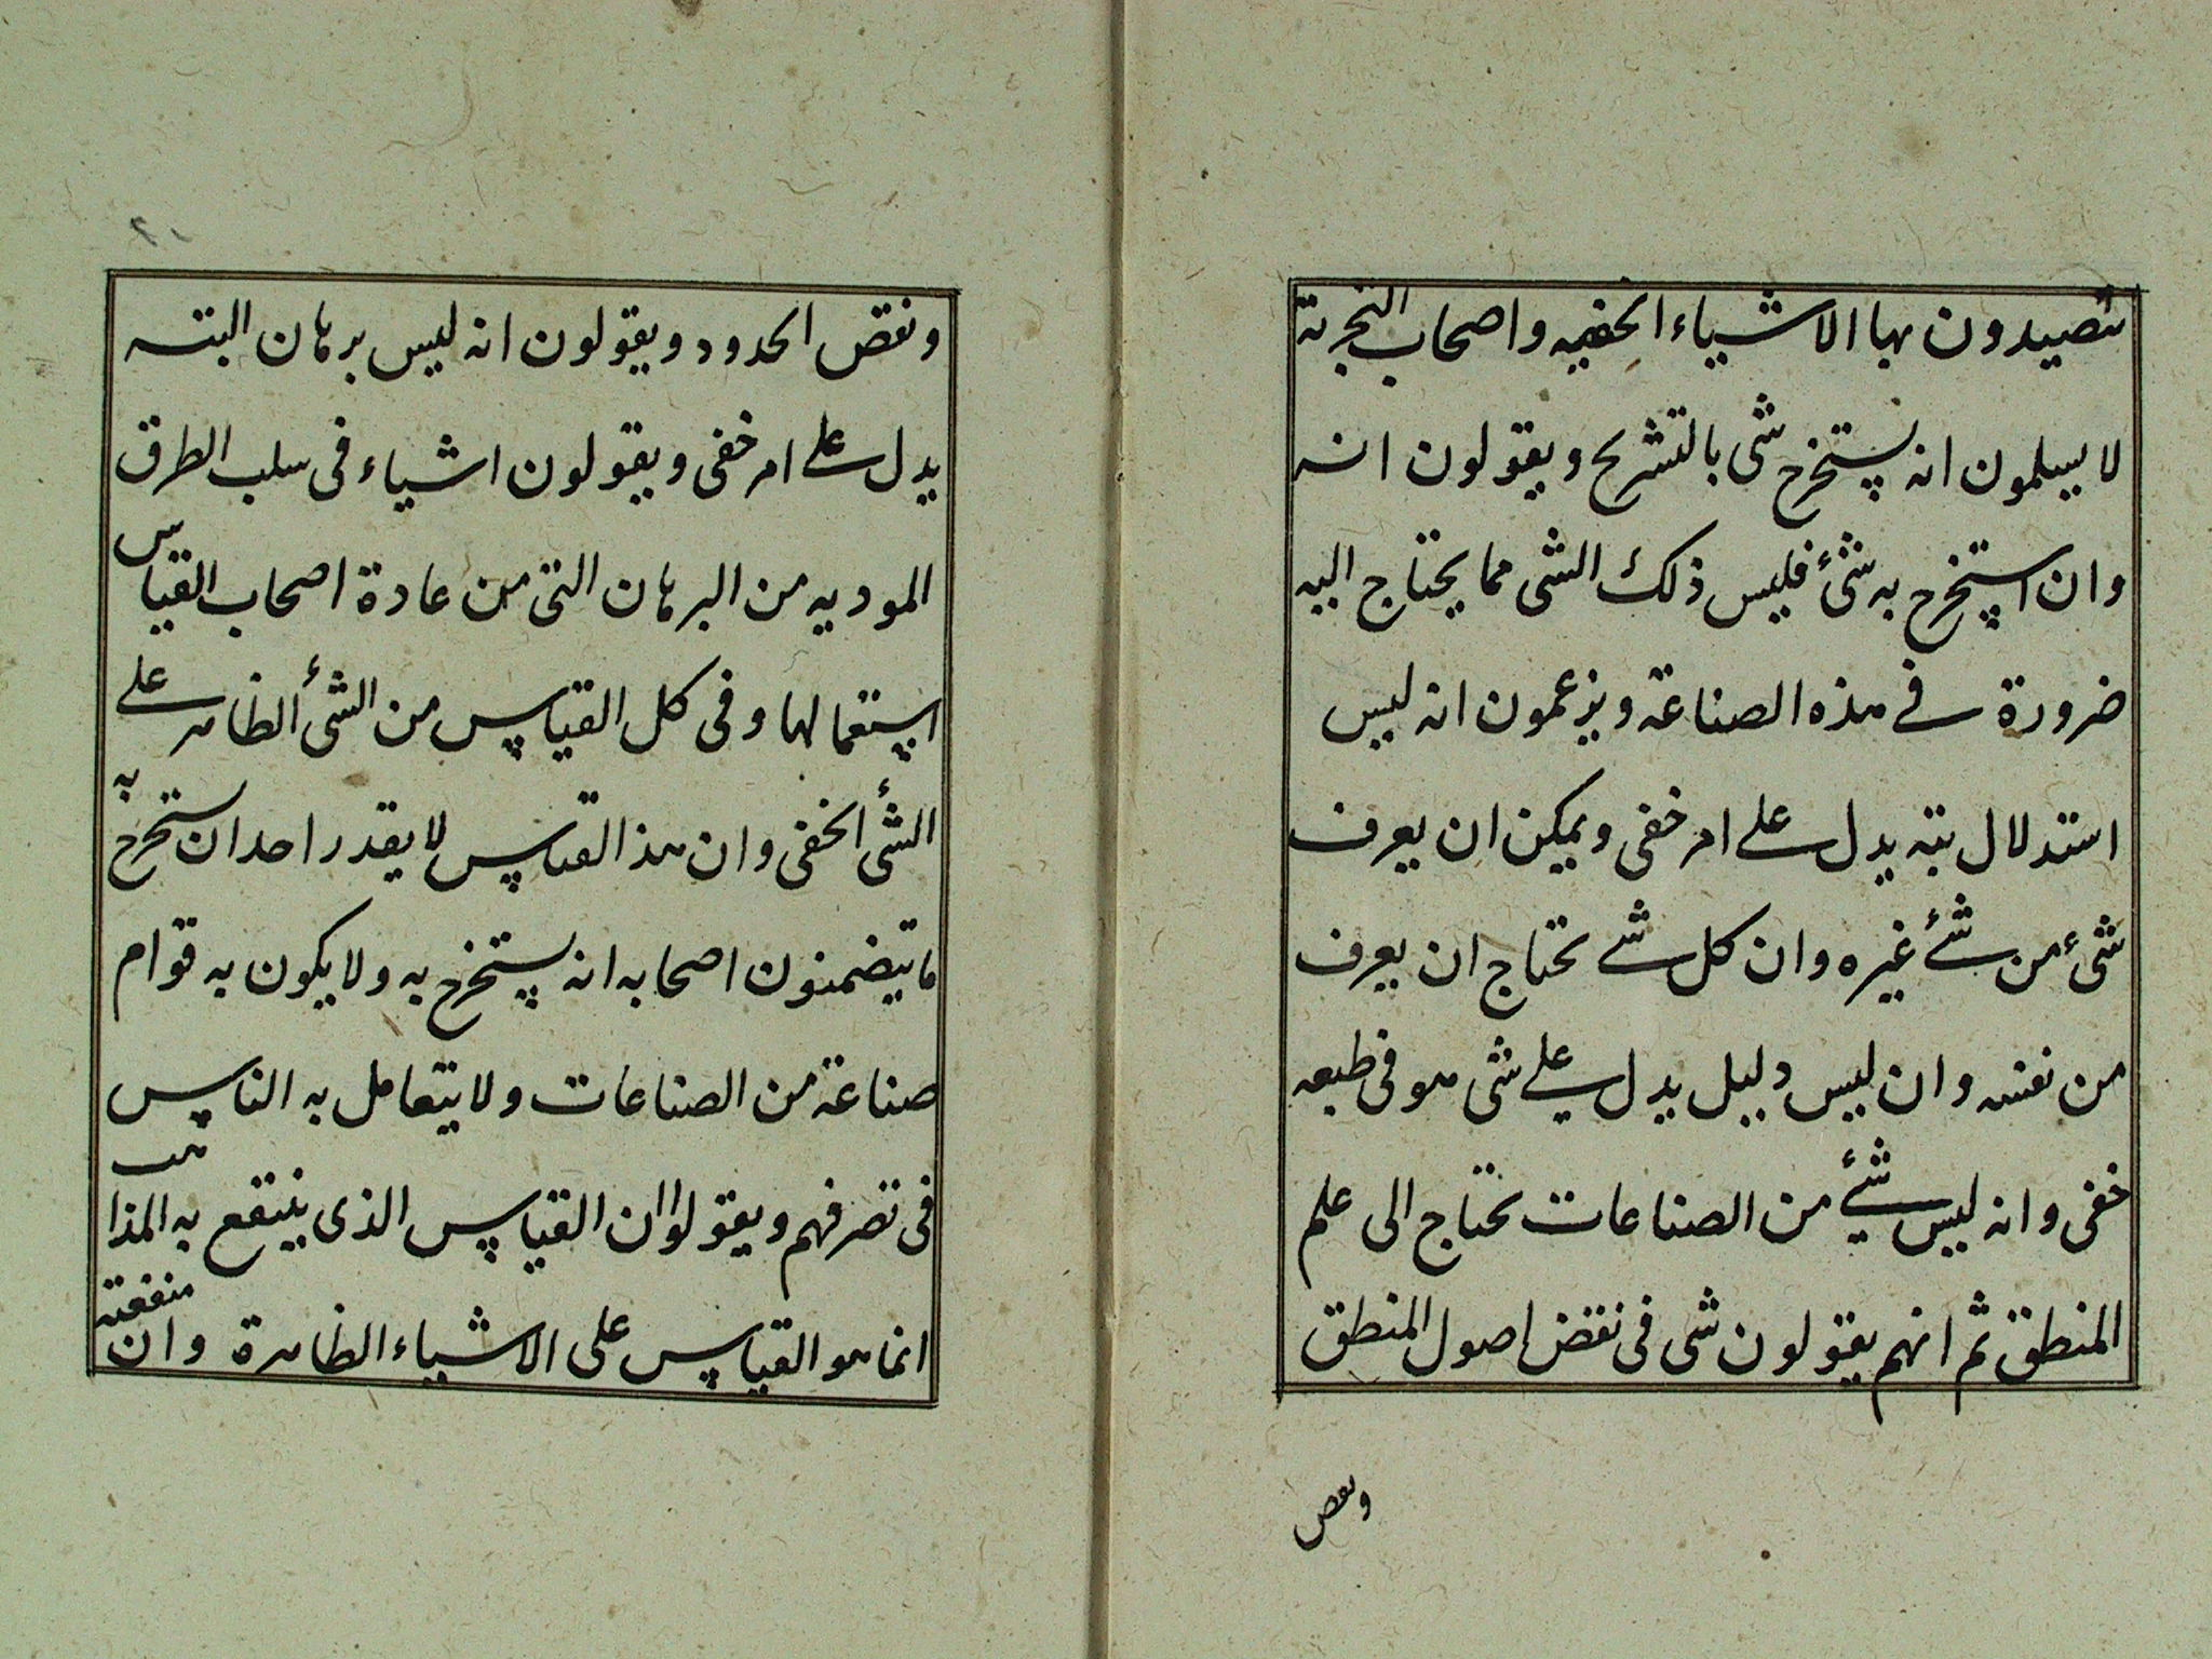 تتصيدون بها الاشياء الخفيه واصحاب التجربة
لا يسلمون انه يستخرج شى بالتشريح ويقولون انه
وان استخرج به شئ فليس ذلك الشى مما يحتاج اليه
ضرورة فے هذه الصناعة ويزعمون انه ليس
استدلال بته يدل علے امر خفى ويمكن ان يعرف
شىء من شئے غيره وان كل شے تحتاج ان يعرف
من نفسه وان ليس دليل يدل علے شى هو فى طبعه
خفى وانه ليس شئے من الصناعات تحتاج الى علم
المنطق ثم انهم يقولون شى فى نقض اصول المنطق
ونقض
ونقض الحدود ويقولون انه ليس برهان البته
يدل علے امر خفى ويقولون اشياء فى سلب الطرق
الموديه من البرهان التى من عادة اصحاب القياس
استعمالها وفى كل القياس من الشئ الظاهر علے
الشئ الخفى وان هذا القياس لا يقدر احد ان يستخرج به
ما يتضمنون اصحابه انه يستخرج به ولا يكون به قوام
صناعة من الصناعات ولا يتعامل به الناس
فى تصرفهم ويقولوا ان القياس الذى ينتفع به المذاهب
انما هو القياس على الاشياء الظاهرة وان منفعته